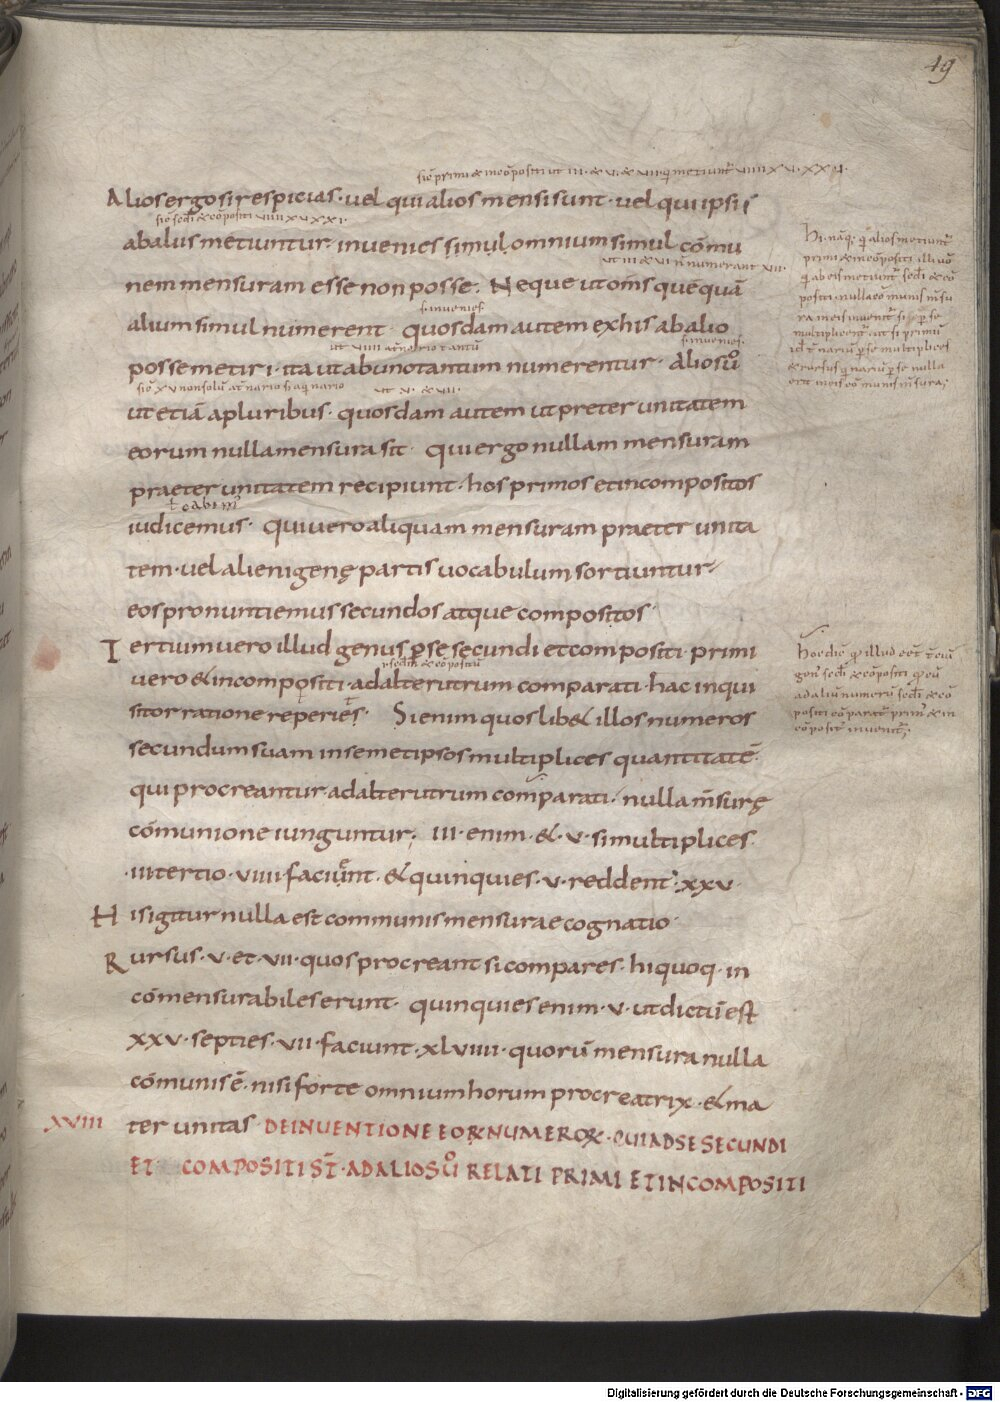 49
sic̄ primi & incōpositi ut III · & V · & VII · q metiunt̄ VIIII XV · XXI ·
Alios ergo si respicias · vel qui alios mensi sunt · vel qui ipsi
sic̄ sec̄di & cōpositi VIIII XV XXI ·
ab aliis metiuntur · invenies simul omnium simul cōmu
ut III & VI n̄ numerant XII ·
nem mensuram esse non posse · Neque ut om̄s quequā
s · invenies
alium simul numerent · quosdam autem ex his ab alio
ut VIIII at̄nario tantū
s · invenies ·
posse metiri · ita ut ab uno tantum numerentur · Aliosv̊
sic̄ XV non solū at̄nario s& a q̄nario
ut V · & VII ·
ut etiā a pluribus · quosdam autem ut preter unitatem
eorum nulla mensura sit · Qui ergo nullam mensuram
praeter unitatem recipiunt · hos primos et incompositos
iudicemus · Qui vero aliquam mensuram praeter unita
tem · vel alienigenę partis vocabulum sortiuntur ·
eos pronuntiemus secundos atque compositos ·
Hi · nāq; q alios metiunt̄
primi & incōpositi · illi v̄o
q ab eis metiunt̄ sec̄di & cō
positi · nulla cōmunis m̄su
ra in eis invenit̄ si p se
multiplicent̄ · ut si primū
t̄nariū p se multiplices
& rursus q̄nariū p se nulla
erit in eis cōmunis m̄sura;
Tertium vero illud genus p se secundi et compositi · primi
s · sec̄di & cōpositū
vero & incompositi · ad alterutrum comparati · hac inqui
sitor ratione reperies · Si enim quoslib& illos numeros
secundum suam in semetipsos multiplices quantitatē ·
qui procreantur · ad alterutrum comparati · nulla m̄surę
cōmunione iunguntur; III · enim · & · V · si multiplices ·
· III tertio · VIIII · faciunt · & quinquies · V · reddent · XXV ·
His igitur nulla est communis mensurae cognatio ·
Rursus · V · et · VII · quos procreant si compares · hi quoq · in
cōmensurabiles erunt · quinquies enim · V · ut dictū est
XXV · septies · VII · faciunt · XLVIIII · quorū mensura nulla
cōmunis ē · nisi forte omnium horum procreatrix · & ma
ter unitas ·
Hoc dic̄ q illud
gen̄ sec̄di & cōpositi
ad aliū numerū sec̄di & cō
positi cōparat̄ prim̄ & in
cōposit̄ invenit̄;
XVIII
DE INVENTIONE EORꝜ NUMERORꝜ · QUI AD SE SECUNDI
ET COMPOSITI ST̄ · AD ALIOS V̊ RELATI PRIMI ET INCOMPOSITI
Digitalisierung gefördert durch die Deutsche Forschungsgemeinschaft - DFG